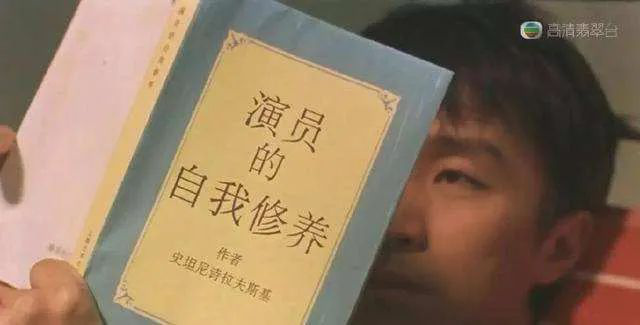 高清翡翠台
演员
的
自我修养
作者
史坦尼诗拉夫斯基